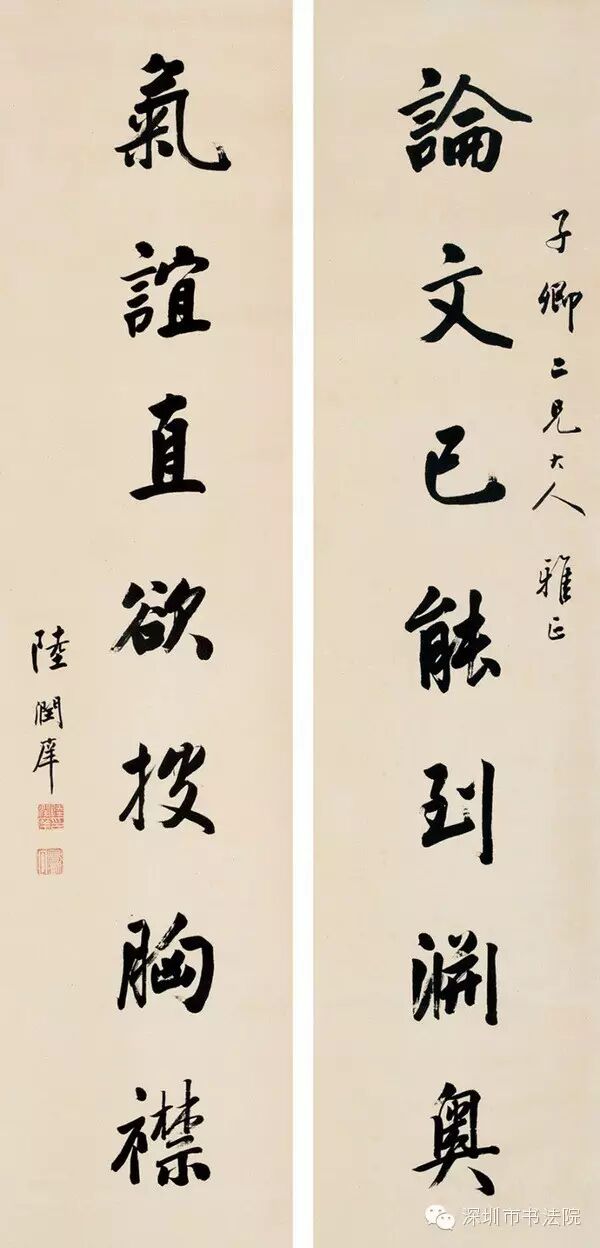 子卿二兄大人 雅正
論文已能到淵奧
氣誼直欲投胸襟
陸潤庠
深圳市书法院